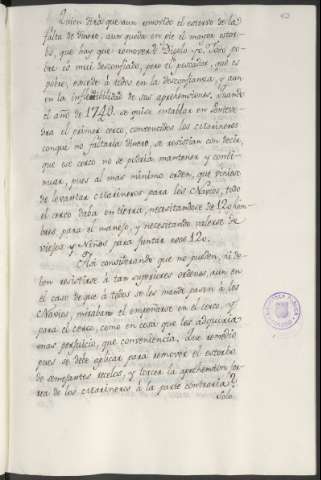 Quien dirá que aun removido el estorvo de la
falta de dinero, aun queda en pie el mayor estor-
bo, que hay que remover? Digolo yo. Todo po-
bre es mui desconfiado, pero el pescador, que es
pobre, excede à todos en la desconfianza, y aun
en la de sus aprehensiones. Quando
el año de 1740. se quiso entablar en Ponteve-
dra el primer cerco, convencidos los Marineros
conque no faltaría dinero, se resistian con decir,
que ese cerco no se podría mantener y conti-
nuar, pues al mas minimo orden, que viniese
de levantar Marineros para los Navios, todo
el cerco daba en tierra, necesitandose de 120 hom-
bres, para el manejo, y necesitando valerse de
viejos y Niños para juntar esos 120.
Asi considerando que no pueden, ni de-
ben resistirse à tan superiores ordenes, aun en
el caso de que à todos se les mande pasar à los
Navios, miraban el empeñarse en el cerco, y
para el cerco, como en cosa que les adquiria
mas perjuicio, que conveniencia. Que remedio
pues se debe aplicar para remover el estorbo
de semejantes recelos, y torcer la aprehensiva for-
zea de los Marineros à la parte contraria?
Solo